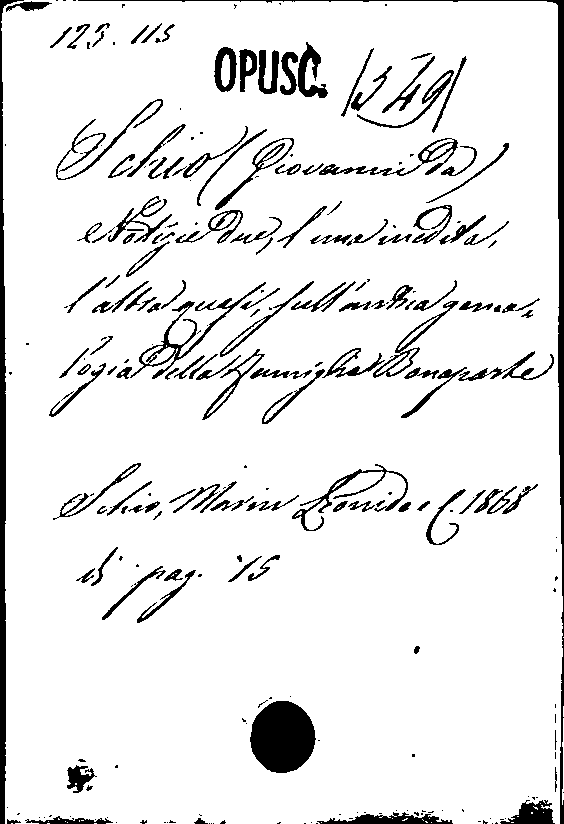 123. 113
OPUSC. 1549
Schio (Giovanni da)
Notizie due, l'una inedita,
l'altra quasi, sull'antica genea-
logia della famiglia Bonaparte
Schio, Marin Leonida C. 1868
di pag. 15